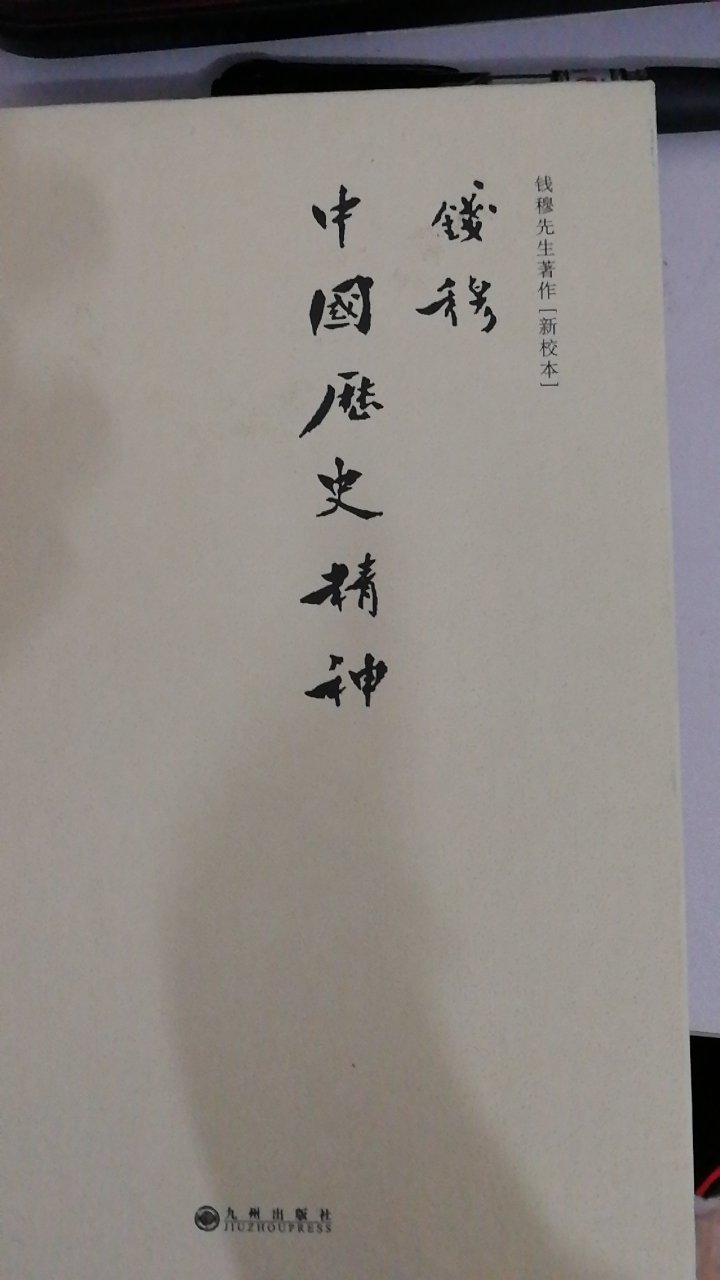 钱穆先生著作[新校本]
錢穆
中國歷史精神
九州出版社
JIUZHOUPRESS